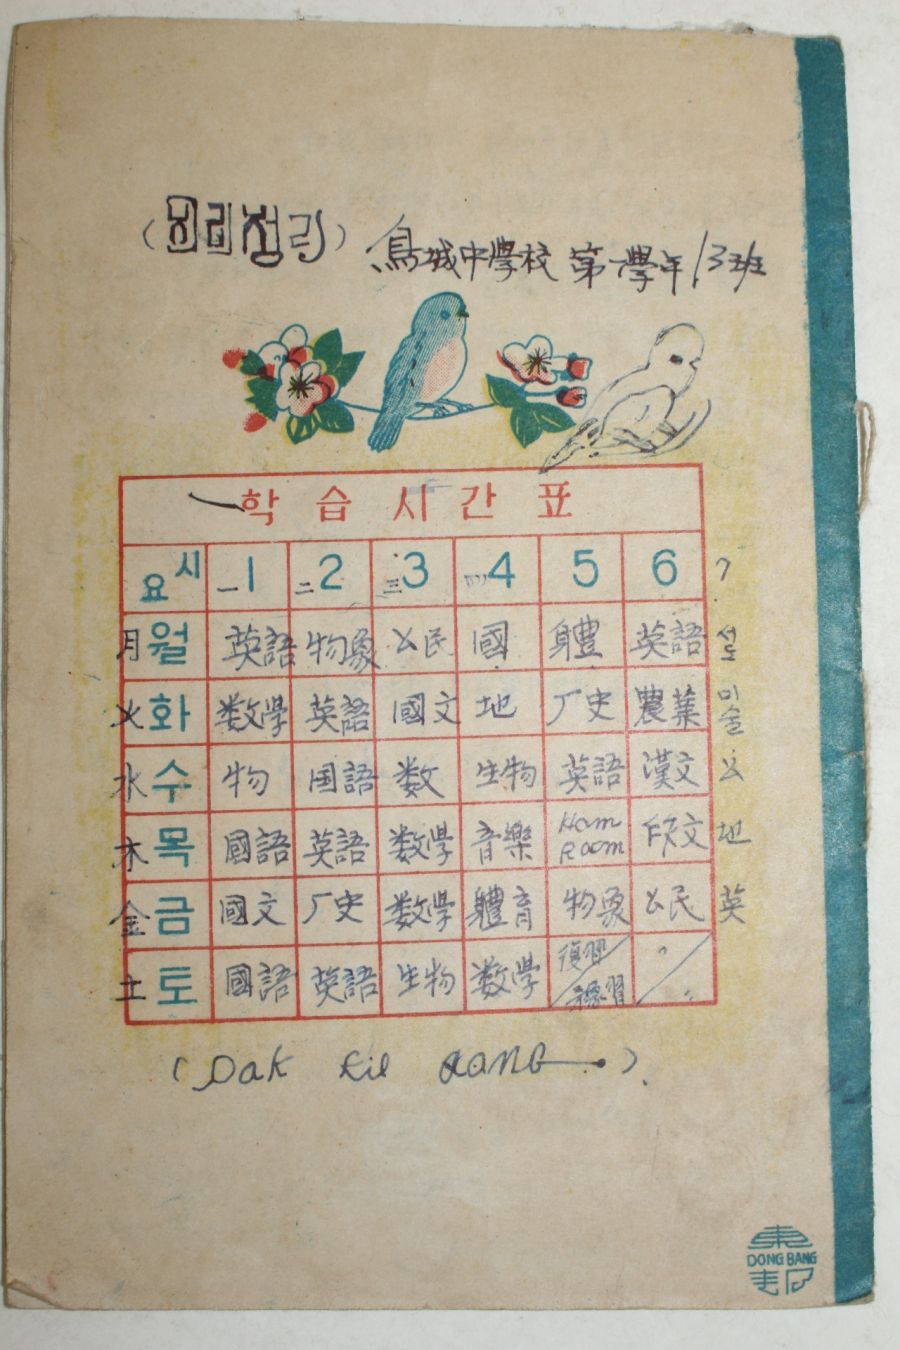 鳥城中學校 第一學年 13班
학습시간표
요 시 一1 二2 三3 四4 5 6 7
月 월 英語 物象 公民 國 身體 英語
火 화 数學 英語 國文 地 厂史 農業 미술
水 수 物 国語 数 生物 英語 漢文 公
木 목 國語 英語 数學 音樂 Hom Room 作文 地
金 금 國文 厂史 数學 體育 物象 公民 英
土 토 國語 英語 生物 数學 復習 練習 〃
DONG BANG